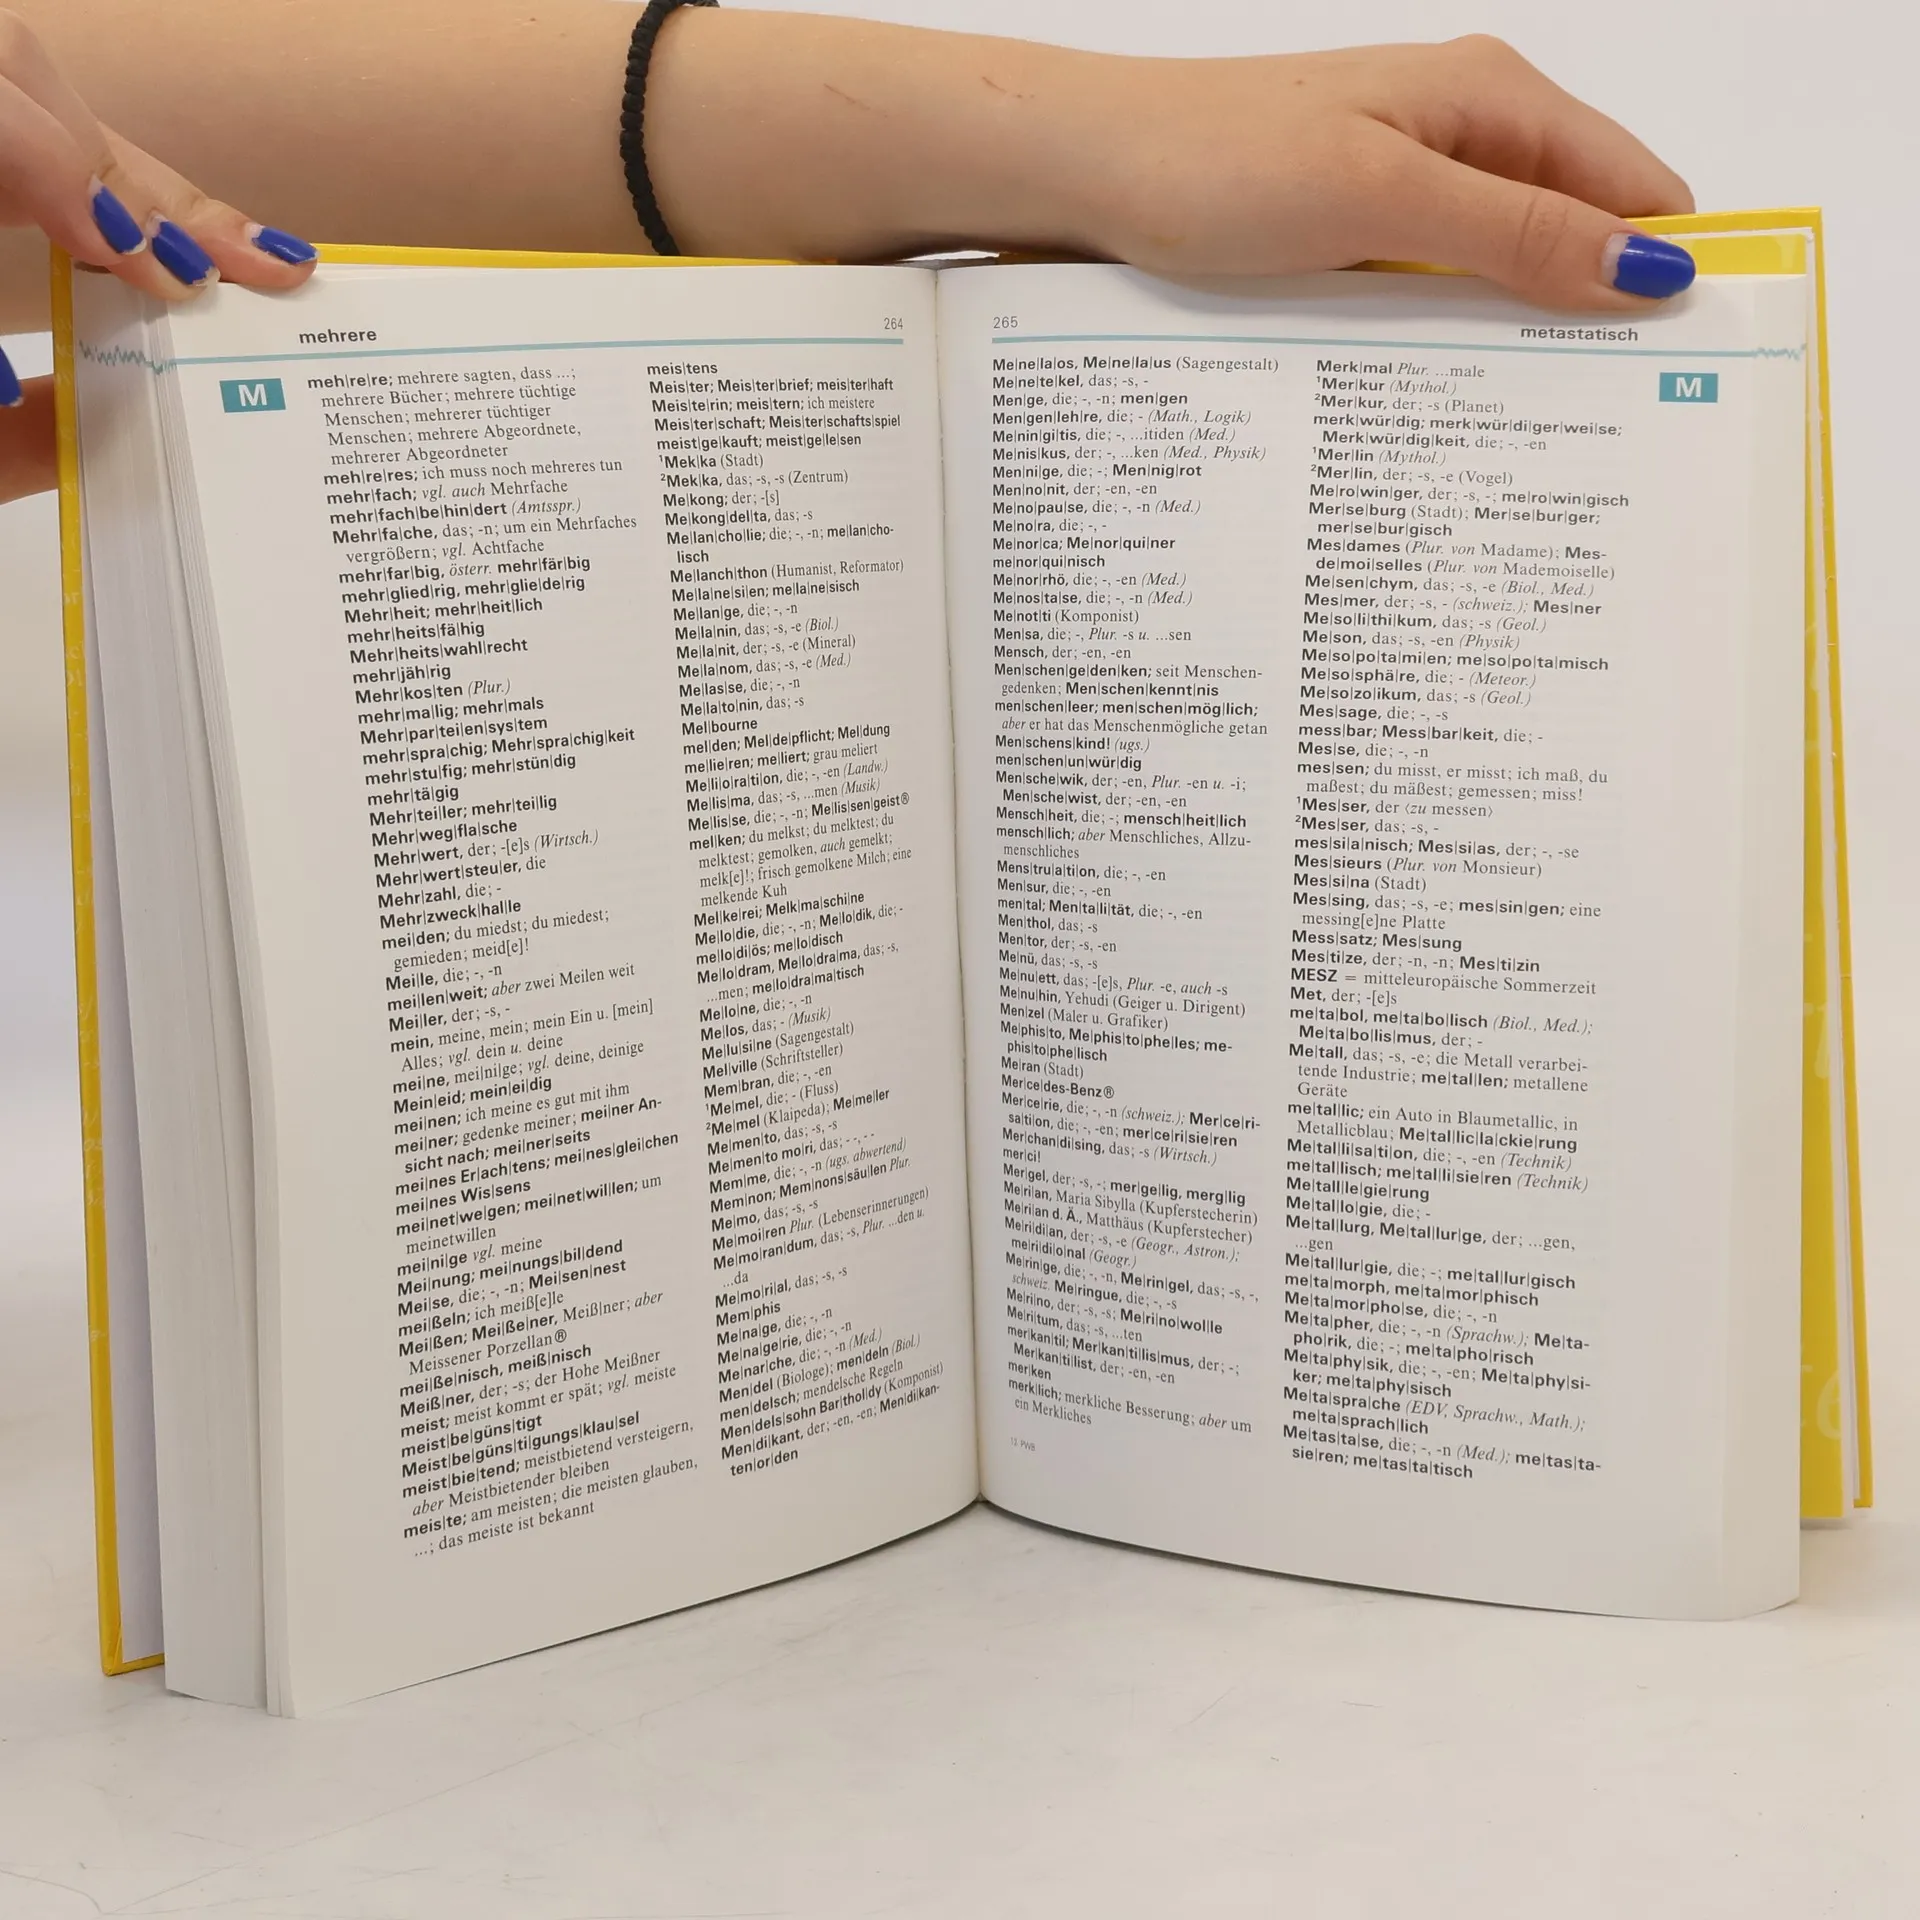 mehrere
264
M
meh|re|re; mehrere sagten, dass ...;
mehrere Bücher; mehrere tüchtige
Menschen; mehrerer tüchtiger
Menschen; mehrere Abgeordnete,
mehrerer Abgeordneter
meh|re|res; ich muss noch mehreres tun
mehr|fach; vgl. auch Mehrfache
mehr|fach|be|hin|dert (Amtsspr.)
Mehr|fa|che, das; -n; um ein Mehrfaches
vergrößern; vgl. Achtfache
mehr|far|big, österr. mehr|fär|big
mehr|glied|rig, mehr|glie|de|rig
Mehr|heit; mehr|heit|lich
mehr|heits|fä|hig
Mehr|heits|wahl|recht
mehr|jäh|rig
Mehr|kos|ten (Plur.)
mehr|ma|lig; mehr|mals
Mehr|par|tei|en|sys|tem
mehr|spra|chig; Mehr|spra|chig|keit
mehr|stu|fig; mehr|stün|dig
mehr|tä|gig
Mehr|tei|ler; mehr|tei|lig
Mehr|weg|fla|sche
Mehr|wert, der; -[e]s (Wirtsch.)
Mehr|wert|steu|er, die
Mehr|zahl, die; -
Mehr|zweck|hal|le
mei|den; du miedst; du miedest;
gemieden; meid[e]!
Mei|le, die; -, -n
mei|len|weit; aber zwei Meilen weit
Mei|ler, der; -s, -
mein, meine, mein; mein Ein u. [mein]
Alles; vgl. dein u. deine
mei|ne, mei|ni|ge; vgl. deine, deinige
Mein|eid; mein|ei|dig
mei|nen; ich meine es gut mit ihm
mei|ner; gedenke meiner; mei|ner An-
sicht nach; mei|ner|seits
mei|nes Er|ach|tens; mei|nes|glei|chen
mei|nes Wis|sens
mei|net|we|gen; mei|net|wil|len; um
meinetwillen
mei|ni|ge vgl. meine
Mei|nung; mei|nungs|bil|dend
Mei|se, die; -, -n; Mei|sen|nest
mei|ßeln; ich meiß[e]le
Mei|ßen; Mei|ße|ner, Meiß|ner; aber
Meissener Porzellan®
mei|ße|nisch, meiß|nisch
Meiß|ner, der; -s; der Hohe Meißner
meist; meist kommt er spät; vgl. meiste
meist|be|güns|tigt
Meist|be|güns|ti|gungs|klau|sel
meist|bie|tend; meistbietend versteigern,
aber Meistbietender bleiben
meis|te; am meisten; die meisten glauben,
...; das meiste ist bekannt
meis|tens
Meis|ter; Meis|ter|brief; meis|ter|haft
Meis|te|rin; meis|tern; ich meistere
Meis|ter|schaft; Meis|ter|schafts|spiel
meist|ge|kauft; meist|ge|le|sen
¹Mek|ka (Stadt)
²Mek|ka, das; -s, -s (Zentrum)
Me|kong; der; -[s]
Me|kong|del|ta, das; -s
Me|lan|cho|lie; die; -, -n; me|lan|cho-
lisch
Me|lanch|thon (Humanist, Reformator)
Me|la|ne|si|en; me|la|ne|sisch
Me|lan|ge, die; -, -n
Me|la|nin, das; -s, -e (Biol.)
Me|la|nit, der; -s, -e (Mineral)
Me|la|nom, das; -s, -e (Med.)
Me|las|se, die; -, -n
Me|la|to|nin, das; -s
Mel|bourne
mel|den; Mel|de|pflicht; Mel|dung
me|lie|ren; me|liert; grau meliert
Me|li|o|ra|ti|on, die; -, -en (Landw.)
Me|lis|ma, das; -s, ...men (Musik)
Me|lis|se, die; -, -n; Me|lis|sen|geist®
mel|ken; du melkst; du melktest; du
melktest; gemolken, auch gemelkt;
melk[e]!; frisch gemolkene Milch; eine
melkende Kuh
Mel|ke|rei; Melk|ma|schi|ne
Me|lo|die, die; -, -n; Me|lo|dik, die; -
me|lo|di|ös; me|lo|disch
Me|lo|dram, Me|lo|dra|ma, das; -s,
...men; me|lo|dra|ma|tisch
Me|lo|ne, die; -, -n
Me|los, das; - (Musik)
Me|lu|si|ne (Sagengestalt)
Mel|ville (Schriftsteller)
Mem|bran, die; -, -en
¹Me|mel, die; - (Fluss)
²Me|mel (Klaipeda); Me|me|ler
Me|men|to, das; -s, -s
Me|men|to mo|ri, das; - -, - -
Mem|me, die; -, -n (ugs. abwertend)
Mem|non; Mem|nons|säu|len Plur.
Me|mo, das; -s, -s
Me|moi|ren Plur. (Lebenserinnerungen)
Me|mo|ran|dum, das; -s, Plur. ...den u.
...da
Me|mo|ri|al, das; -s, -s
Mem|phis
Me|na|ge, die; -, -n
Me|na|ge|rie, die; -, -n
Me|nar|che, die; -, -n (Med.)
Men|del (Biologe); men|deln (Biol.)
men|delsch; mendelsche Regeln
Men|dels|sohn Bar|thol|dy (Komponist)
Men|di|kant, der; -en, -en; Men|di|kan-
ten|or|den
265
metastatisch
M
Me|ne|la|os, Me|ne|la|us (Sagengestalt)
Me|ne|te|kel, das; -s, -
Men|ge, die; -, -n; men|gen
Men|gen|leh|re, die; - (Math., Logik)
Me|nin|gi|tis, die; -, ...itiden (Med.)
Me|nis|kus, der; -, ...ken (Med., Physik)
Men|ni|ge, die; -; Men|nig|rot
Men|no|nit, der; -en, -en
Me|no|pau|se, die; -, -n (Med.)
Me|no|ra, die; -, -
Me|nor|ca; Me|nor|qui|ner
me|nor|qui|nisch
Me|nor|rhö, die; -, -en (Med.)
Me|nos|ta|se, die; -, -n (Med.)
Me|not|ti (Komponist)
Men|sa, die; -, Plur. -s u. ...sen
Mensch, der; -en, -en
Men|schen|ge|den|ken; seit Menschen-
gedenken; Men|schen|kennt|nis
men|schen|leer; men|schen|mög|lich;
aber er hat das Menschenmögliche getan
Men|schens|kind! (ugs.)
men|schen|un|wür|dig
Men|sche|wik, der; -en, Plur. -en u. -i;
Men|sche|wist, der; -en, -en
Mensch|heit, die; -; mensch|heit|lich
mensch|lich; aber Menschliches, Allzu-
menschliches
Mens|tru|a|ti|on, die; -, -en
Men|sur, die; -, -en
men|tal; Men|ta|li|tät, die; -, -en
Men|thol, das; -s
Men|tor, der; -s, -en
Me|nü, das; -s, -s
Me|nu|ett, das; -[e]s, Plur. -e, auch -s
Me|nu|hin, Yehudi (Geiger u. Dirigent)
Men|zel (Maler u. Grafiker)
Me|phis|to, Me|phis|to|phe|les; me-
phis|to|phe|lisch
Me|ran (Stadt)
Mer|ce|des-Benz®
Mer|ce|rie, die; -, -n (schweiz.); Mer|ce|ri-
sa|ti|on, die; -, -en; mer|ce|ri|sie|ren
Mer|chan|di|sing, das; -s (Wirtsch.)
mer|ci!
Mer|gel, der; -s, -; mer|ge|lig, merg|lig
Me|ri|an, Maria Sibylla (Kupferstecherin)
Me|ri|an d. Ä., Matthäus (Kupferstecher)
Me|ri|di|an, der; -s, -e (Geogr., Astron.);
me|ri|di|o|nal (Geogr.)
Me|rin|ge, die; -, -n, Me|rin|gel, das; -s, -,
schweiz. Me|ringue, die; -, -s
Me|ri|no, der; -s, -s; Me|ri|no|wol|le
Me|ri|tum, das; -s, ...ten
mer|kan|til; Mer|kan|ti|lis|mus, der; -;
Mer|kan|ti|list, der; -en, -en
mer|ken
merk|lich; merkliche Besserung; aber um
ein Merkliches
13 PWB
Merk|mal Plur. ...male
¹Mer|kur (Mythol.)
²Mer|kur, der; -s (Planet)
merk|wür|dig; merk|wür|di|ger|wei|se;
Merk|wür|dig|keit, die; -, -en
¹Mer|lin (Mythol.)
²Mer|lin, der; -s, -e (Vogel)
Me|ro|win|ger, der; -s, -; me|ro|win|gisch
Mer|se|burg (Stadt); Mer|se|bur|ger;
mer|se|bur|gisch
Mes|dames (Plur. von Madame); Mes-
de|moi|selles (Plur. von Mademoiselle)
Me|sen|chym, das; -s, -e (Biol., Med.)
Mes|mer, der; -s, - (schweiz.); Mes|ner
Me|so|li|thi|kum, das; -s (Geol.)
Me|son, das; -s, -en (Physik)
Me|so|po|ta|mi|en; me|so|po|ta|misch
Me|so|sphä|re, die; - (Meteor.)
Me|so|zo|i|kum, das; -s (Geol.)
Mes|sage, die; -, -s
mess|bar; Mess|bar|keit, die; -
Mes|se, die; -, -n
mes|sen; du misst, er misst; ich maß, du
maßest; du mäßest; gemessen; miss!
¹Mes|ser, der ⟨zu messen⟩
²Mes|ser, das; -s, -
mes|si|a|nisch; Mes|si|as, der; -, -se
Mes|sieurs (Plur. von Monsieur)
Mes|si|na (Stadt)
Mes|sing, das; -s, -e; mes|sin|gen; eine
messing[e]ne Platte
Mess|satz; Mes|sung
Mes|ti|ze, der; -n, -n; Mes|ti|zin
MESZ = mitteleuropäische Sommerzeit
Met, der; -[e]s
me|ta|bol, me|ta|bo|lisch (Biol., Med.);
Me|ta|bo|lis|mus, der; -
Me|tall, das; -s, -e; die Metall verarbei-
tende Industrie; me|tal|len; metallene
Geräte
me|tal|lic; ein Auto in Blaumetallic, in
Metallicblau; Me|tal|lic|la|ckie|rung
Me|tal|li|sa|ti|on, die; -, -en (Technik)
me|tal|lisch; me|tal|li|sie|ren (Technik)
Me|tall|le|gie|rung
Me|tal|lo|gie, die; -
Me|tal|lurg, Me|tal|lur|ge, der; ...gen,
...gen
Me|tal|lur|gie, die; -; me|tal|lur|gisch
me|ta|morph, me|ta|mor|phisch
Me|ta|mor|pho|se, die; -, -n
Me|ta|pher, die; -, -n (Sprachw.); Me|ta-
pho|rik, die; -; me|ta|pho|risch
Me|ta|phy|sik, die; -, -en; Me|ta|phy|si-
ker; me|ta|phy|sisch
Me|ta|spra|che (EDV, Sprachw., Math.);
me|ta|sprach|lich
Me|tas|ta|se, die; -, -n (Med.); me|tas|ta-
sie|ren; me|tas|ta|tisch